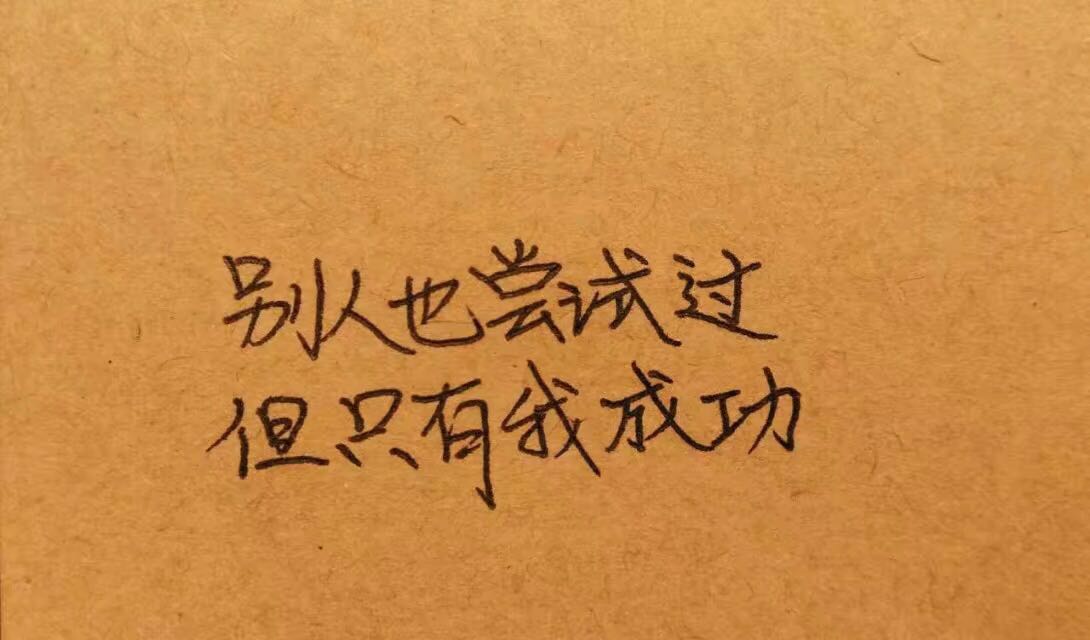 别人也尝试过
但只有我成功